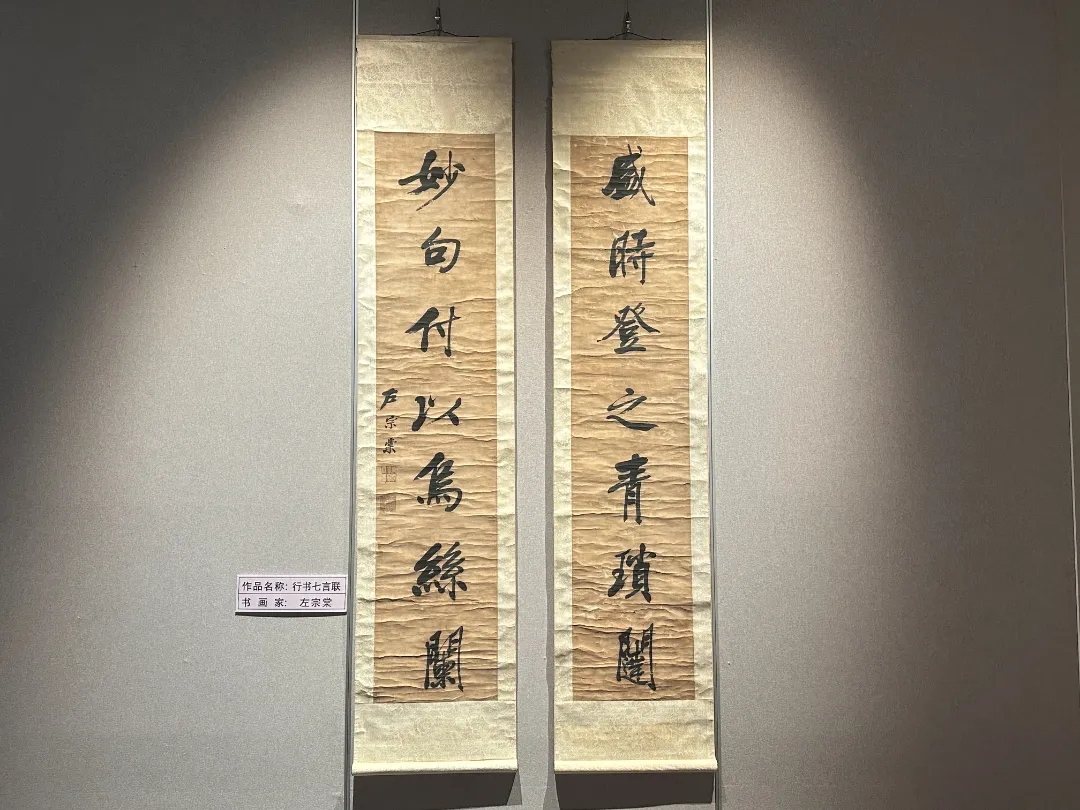 盛時登之青瑣闥
妙句付以烏絲闌
左宗棠
作品名称: 行书七言联
书 画 家: 左宗棠